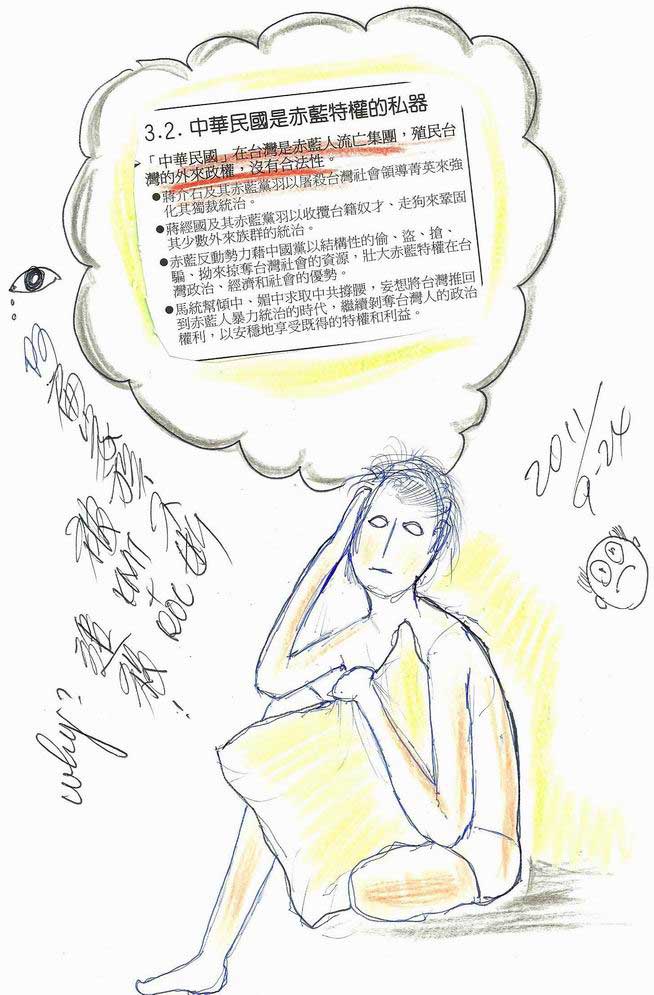 3.2. 中華民國是赤藍特權的私器
➤「中華民國」在台灣是赤藍人流亡集團，殖民台
灣的外來政權，沒有合法性。
●蔣介石及其赤藍黨羽以屠殺台灣社會領導菁英來強
化其獨裁統治。
●蔣經國及其赤藍黨羽以收攬台籍奴才、走狗來鞏固
其少數外來族群的統治。
●赤藍反動勢力藉中國黨以結構性的偷、盜、搶、
騙、拗來掠奪台灣社會的資源，壯大赤藍特權在台
灣政治、經濟和社會的優勢。
●馬統幫傾中、媚中求取中共撐腰，妄想將台灣推回
到赤藍人暴力統治的時代，繼續剝奪台灣人的政治
權利，以安穩地享受既得的特權和利益。
2011/
9-24
KMT
ROC
why?